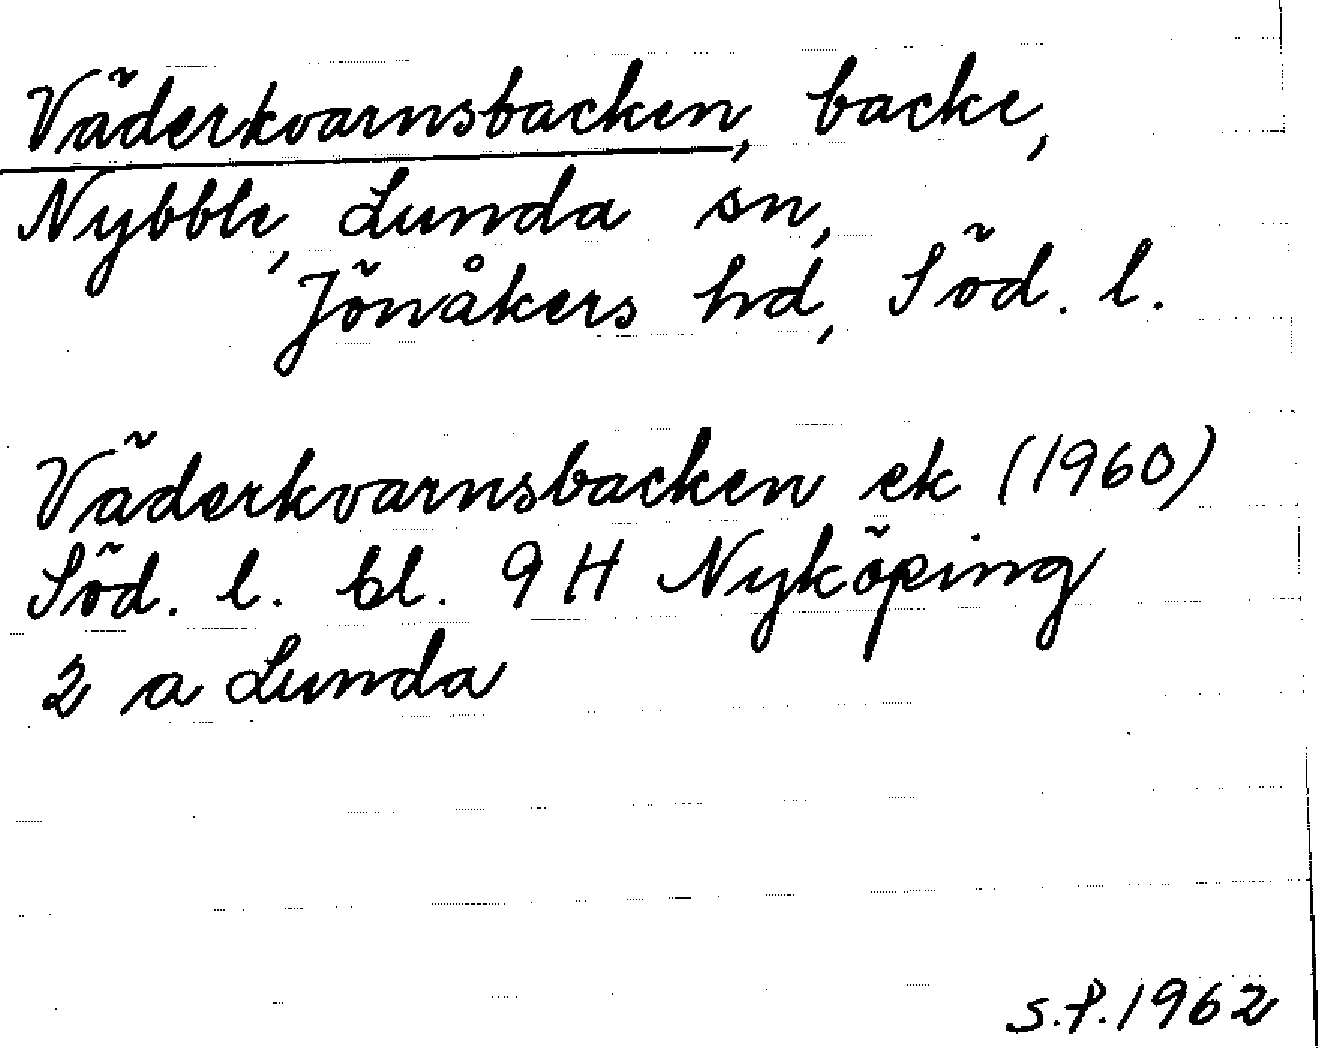 Väderkvarnsbacken, backe,
Nybble, Lunda sn,
Jönåkers hd, Söd. l.
Väderkvarnsbacken ek (1960)
Söd. l. bl. 9 H Nyköping
2 a Lunda
S.P. 1962